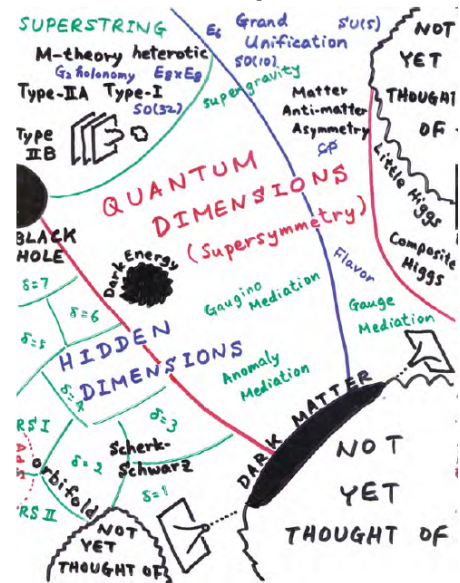 SUPERSTRING
M-theory heterotic
G2 holonomy E8×E8
Type-IIA Type-I
SO(32)
Type
IIB
E6 Grand
Unification
SU(5)
SO(10)
supergravity
Matter
Anti-matter
Asymmetry
CP
NOT
YET
THOUGHT
OF
Little Higgs
Composite
Higgs
QUANTUM
DIMENSIONS
(Supersymmetry)
BLACK
HOLE
Dark Energy
Flavor
Gaugino
Mediation
Gauge
Mediation
Anomaly
Mediation
δ=7
δ=6
δ=5
HIDDEN
DIMENSIONS
δ=4
δ=3
RS I
AdS
orbifold
RS II
δ=2
Scherk-
Schwarz
δ=1
DARK MATTER
NOT
YET
THOUGHT OF
NOT
YET
THOUGHT OF